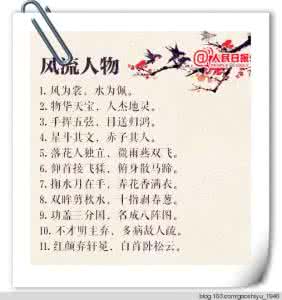 @人民日报
风流人物
1.风为裳，水为佩。
2.物华天宝，人杰地灵。
3.手挥五弦，目送归鸿。
4.星斗其文，赤子其人。
5.落花人独立，微雨燕双飞。
6.仰首接飞猱，俯身散马蹄。
7.掬水月在手，弄花香满衣。
8.双眸剪秋水，十指剥春葱。
9.功盖三分国，名成八阵图。
10.不才明主弃，多病故人疏。
11.红颜弃轩冕，白首卧松云。
blog.163.com/gaoshiyu_1946